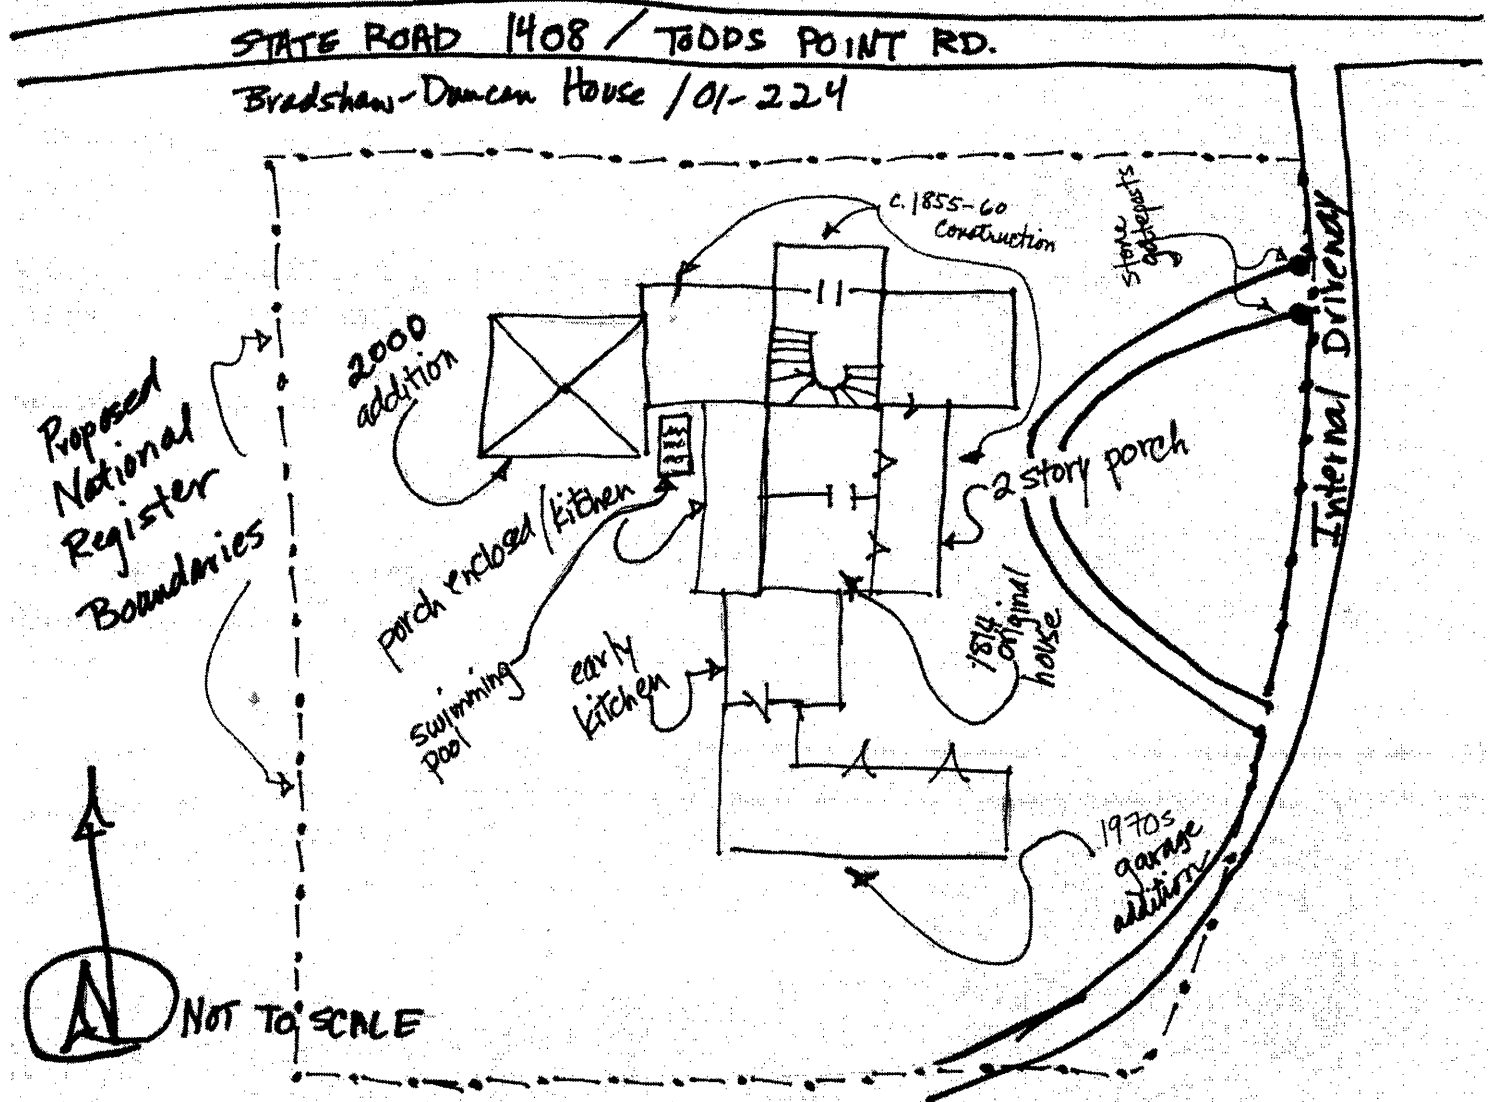 STATE ROAD 1408 / TODDS POINT RD.
Bradshaw-Duncan House / 01-224
c. 1855-60
Construction
stone
gateposts
Internal Driveway
2000
addition
Proposed
National
Register
Boundaries
2 story porch
porch enclosed / kitchen
swimming
pool
early
kitchen
1814
original
house
1970s
garage
addition
N
NOT TO SCALE